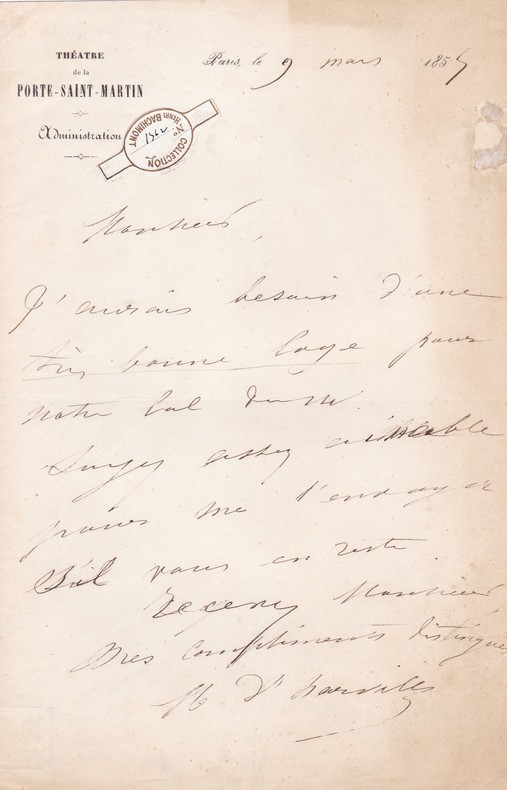 THÉATRE
de la
PORTE-SAINT-MARTIN
Administration
Paris, le 9 mars 1854
COLLECTION
HENRI BACHIMONT
No
Monsieur,
J'aurais besoin d'une
très bonne loge pour
notre bal
Soyez assez aimable
pour me l'envoyer
S'il vous en reste.
Recevez Monsieur
Mes compliments distingués